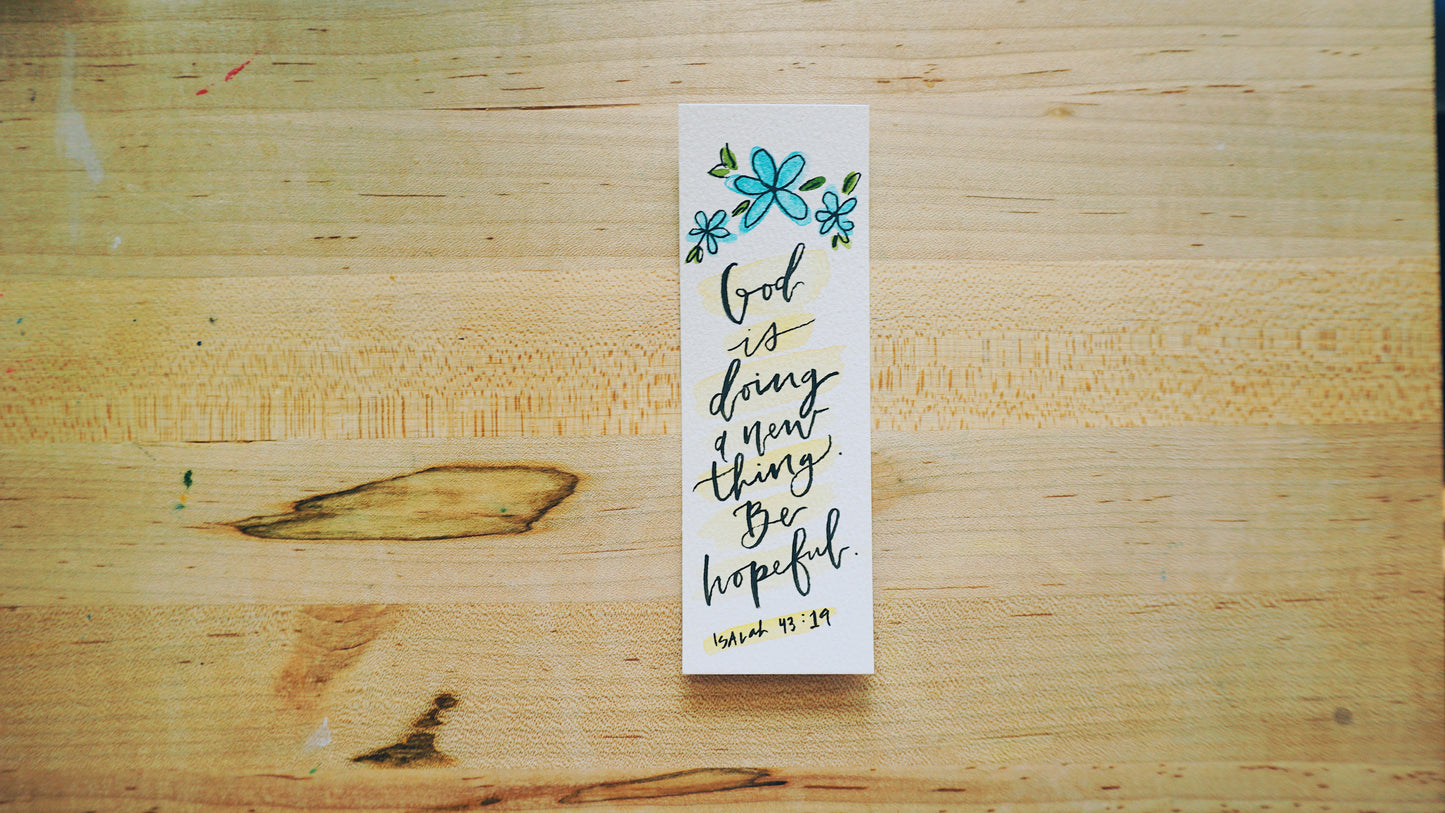 God
is
doing
a new
thing.
Be
hopeful.
ISAIah 43:19